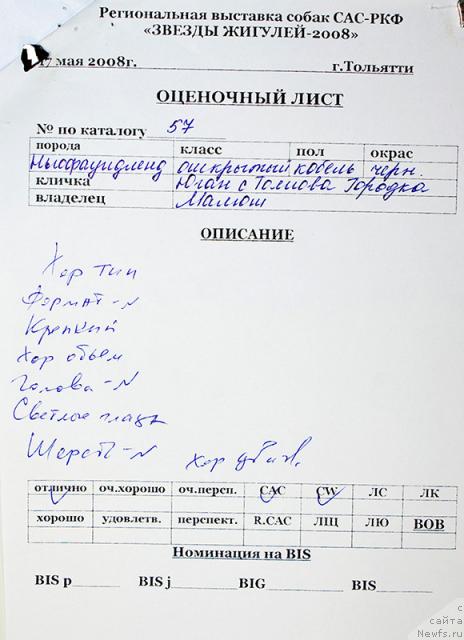 Региональная выставка собак САС-РКФ
«ЗВЕЗДЫ ЖИГУЛЕЙ-2008»
17 мая 2008г. г.Тольятти
ОЦЕНОЧНЫЙ ЛИСТ
№ по каталогу 57
порода класс пол окрас
Ньюфаундленд открытый кобель черн.
кличка Юган с Толмова Городка
владелец Малюш
ОПИСАНИЕ
Хор тип
Формат - N
Крепкий
Хор объем
Голова - N
Светлые глаза
Шерсть - N хор движ.
отлично оч.хорошо оч.персп. САС CW ЛС ЛК
хорошо удовлетв. перспект. R.САС ЛЩ ЛЮ ВОВ
Номинация на BIS
BIS p______ BIS j______ BIG______ BIS______
с
сайта
Newfs.ru